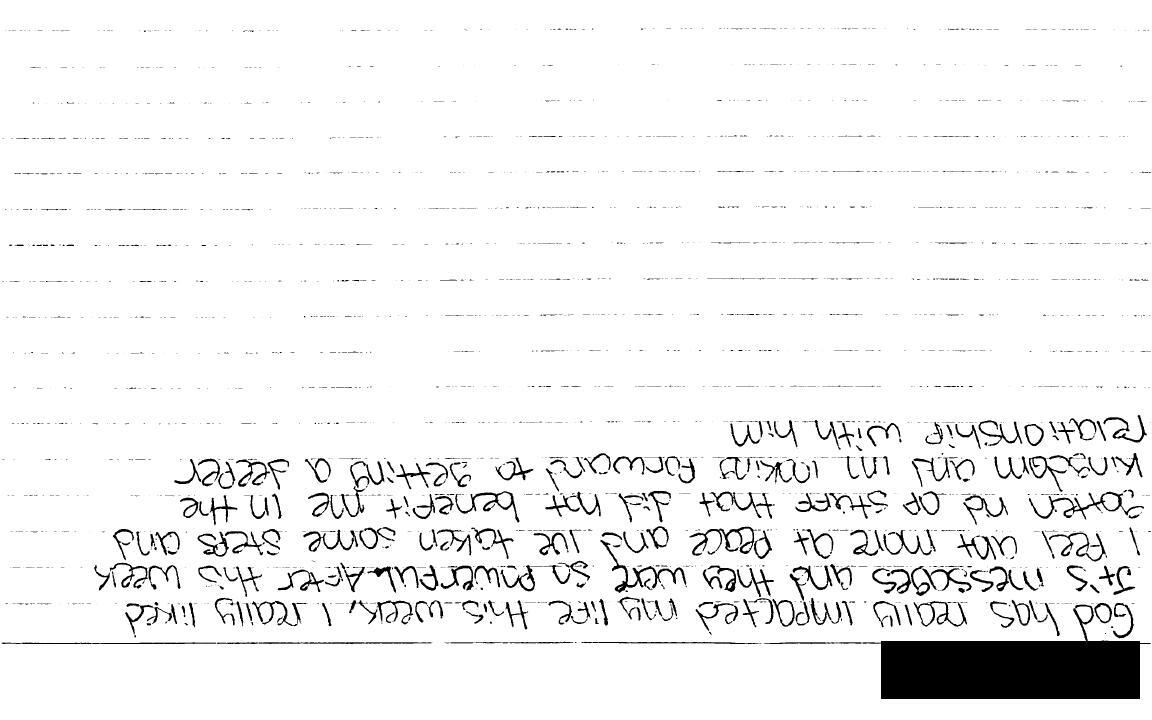 God has really impacted my life this week, I really liked
Jt's messages and they were so powerful. After this week
I feel alot more at peace and ive taken some steps and
gotten rid of stuff that did not benefit me in the
kingdom and im looking forward to getting a deeper
relationship with him